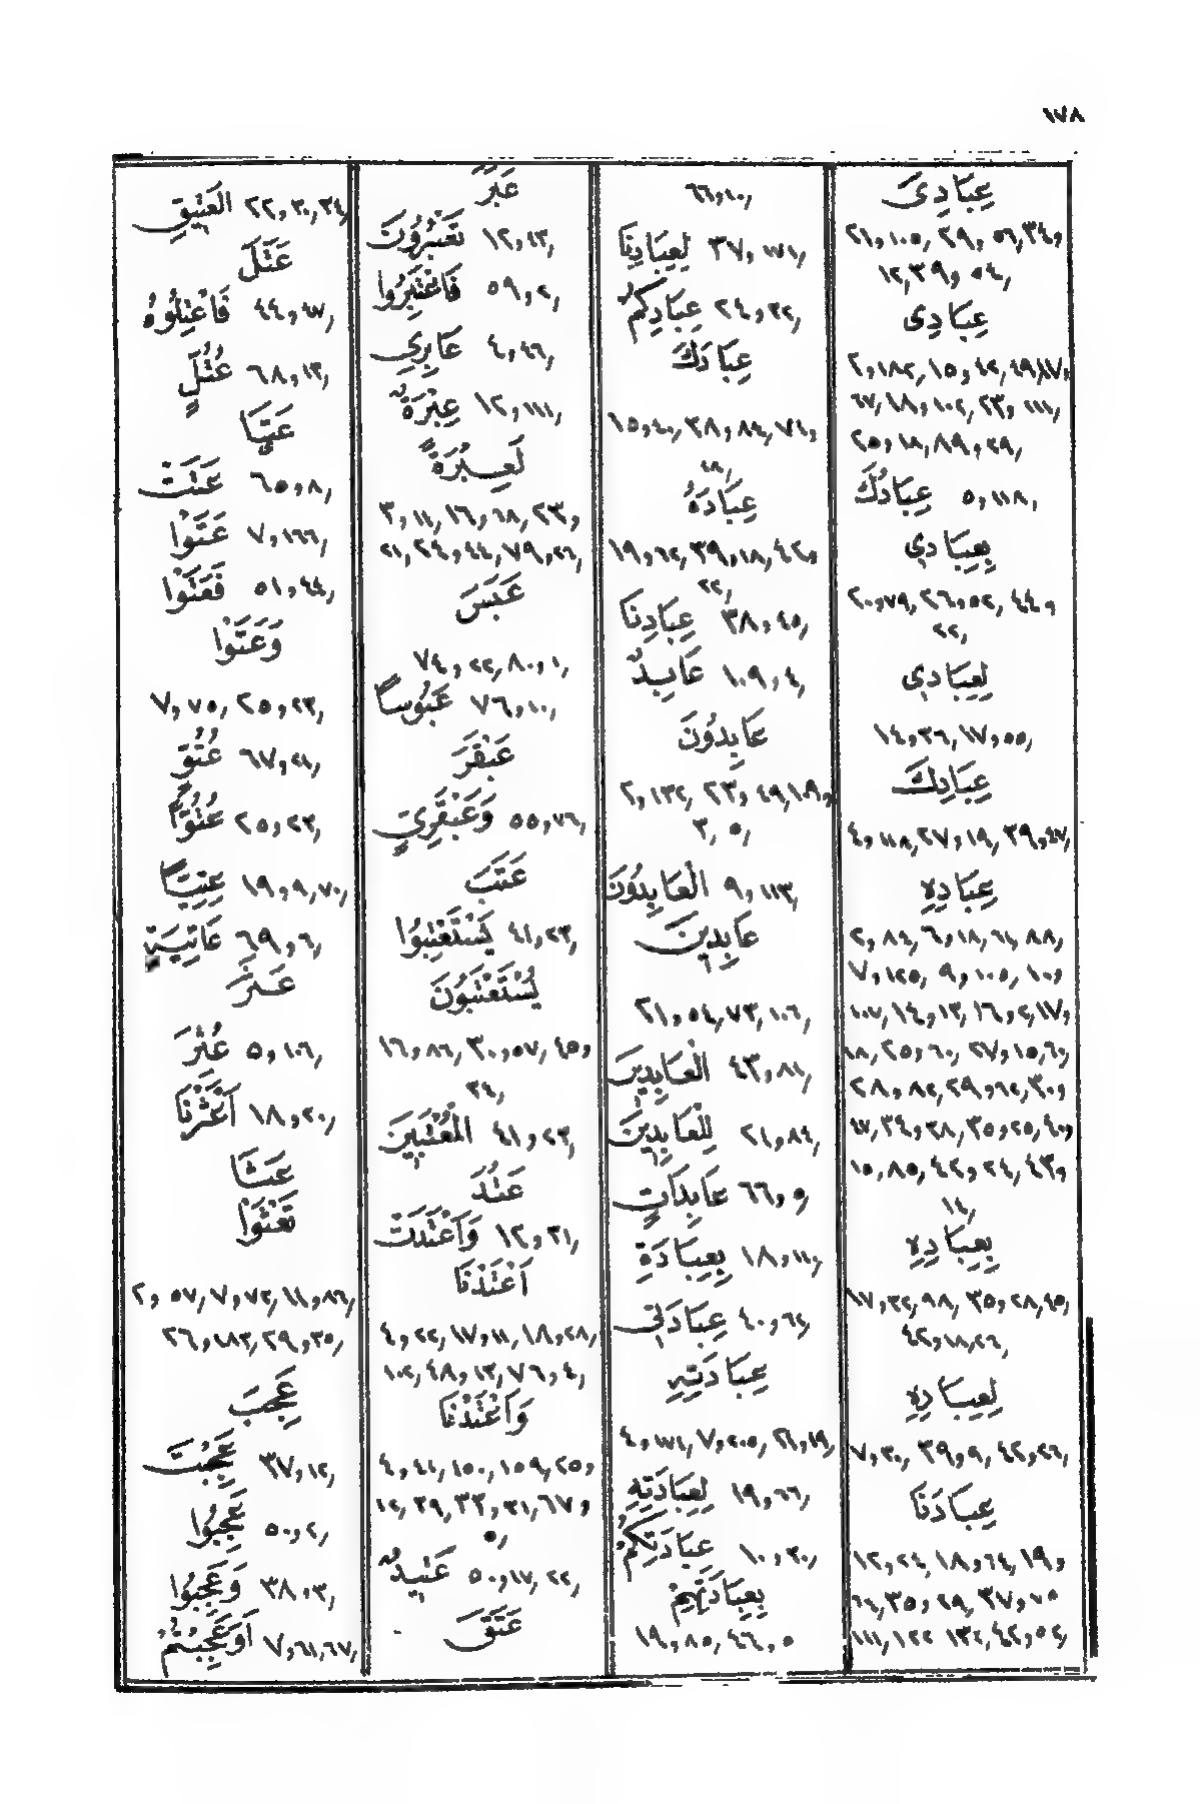 ١٧٨
عِبَادِىَ
٢١,١٠٥, ٢٩, ٥٦,٣٤,
١٢,٣٩, ٥٤,
عِبَادِى
٢,١٨٦, ١٥, ٤٢, ٤٩,١٧,
٢٥,١٨,٨٩,٢٩,
عِبَادُكَ ٥,١١٨,
بِعِبَادِي
٢٠,٧٩, ٢٦,٥٢, ٤٤,
٢٢,
لِعِبَادِي
١٤,٣٦,١٧,٥٥,
عِبَادِكَ
٤,١١٨,٢٧,١٩, ٣٩,٤٧,
عِبَادِهِ
٢,٨٤,٦,١٨,٦١,٨٨,
٧,١٢٥, ٩,١٠٥, ١٠,
١٠٧,١٤,١٣,١٦,٢,١٧,
١٨,٢٥,٦٠, ٢٧,١٥,٦٠,
٢٨,٨٢,٢٩,٦٢,٣٠,
٦٧,٣٤,٣٨,٣٥,٢٥,٤٠,
١٥,٨٥,٤٢,٢٤,٤٣,
١٤,
بِعِبَادِهِ
١٧,٣٢,٩٨, ٣٥,٢٨,٤٥,
٤٢,١٨,٢٦,
لِعِبَادِهِ
٧,٣٠, ٣٩,٩, ٤٢,٢٦,
عِبَادَنَا
١٢,٢٤,١٨,٦٤,١٩,
٦٤,٣٥, ٢٩,٣٧,٧٥
١١١,١٢٢ ١٣٢,٤٢,٥٢,
٦٦,١٠,
لِعِبَادِنَا ٣٧,١٧١,
عِبَادِكُمْ ٢٤,٣٢,
عِبَادَكَ
١٥,٤٠,٣٨,٨٤,٧١,
٤٨,
عِبَادَهُ
١٩,٦٢,٣٩,١٨,٤٢,
٢٢,
عِبَادِنَا ٣٨,٤٥,
عَابِدٌ ١٠٩,٤,
عَابِدُونَ
٢,١٣٢, ٢٣, ٤٩,١٨٩,
٣, ٥,
الْعَابِدُونَ ٩,١١٣,
عَابِدِينَ
٢١,٥٤,٧٣,١٠٦,
الْعَابِدِينَ ٤٣,٨١,
لِلْعَابِدِينَ ٢١,٨٤,
عَابِدَاتٍ ٦٦,٥,
بِعِبَادَةِ ١٨,١١,
عِبَادَتِي ٤٠,٦٤,
عِبَادَتِهِ
٤,١٧٤,٧,٢٠٥, ٢١,١٩,
لِعِبَادَتِهِ ١٩,٦٦,
عِبَادَتِكُمْ ١٠,٣٠,
بِعِبَادَتِهِمْ
١٩,٨٥,٤٦,٥
عَبَرَ
تَعْبُرُونَ ١٢,٤٣,
فَاعْتَبِرُوا ٥٩,٢,
عَابِرِي ٤,٤٦,
عِبْرَةٌ ١٢,١١١,
لَعِبْرَةً
٣,١١,١٦,٦٨,٢٣,
٢١,٢٤,٤٤,٧٩,٢٦,
عَبَسَ
٧٤,٢٢,٨٠,١,
عَبُوسًا ٧٦,١٠,
عَبْقَرَ
وَعَبْقَرِيٍّ ٥٥,٧٦,
عَتَبَ
يَسْتَعْتِبُوا ٤١,٢٣,
يُسْتَعْتَبُونَ
١٦,٨٦,٣٠,٥٧,٤٥,
٣٤,
الْمُعْتَبِينَ ٤١,٢٣,
عَتُدَ
وَاَعْتَدَتْ ١٢,٣١,
اَعْتَدْنَا
٤,٢٢,١٧,١١,١٨,٢٨,
١٠٢,٤٨,١٣,٧٦,٤,
وَاَعْتَدْنَا
٤,٤١,١٥٠,١٥٩,٢٥,
١٢,٢٩,٣٣,٣١,٦٧,
٥,
عَتِيدٌ ٥٠,١٧,٢٢,
عَتَقَ
الْعَتِيقِ ٢٢,٣٠,٣٤,
عَتَلَ
فَاعْتِلُوهُ ٤٤,٤٧,
عُتُلٍّ ٦٨,١٣,
عَتَا
عَتَتْ ٦٥,٨,
عَتَوْا ٧,١٦٦,
فَعَتَوْا ٥١,٤٤,
وَعَتَوْا
٧,٧٥, ٢٥,٢٣,
عُتُوٍّ ٦٧,٢١,
عُتُوًّا ٢٥,٢٣,
عِتِيًّا ١٩,٩,٧٠,
عَاتِيَةٍ ٦٩,٦,
عَثَرَ
عُثِرَ ٥,١٠٦,
اَعْثَرْنَا ١٨,٢٠,
عَثَا
تَعْثَوْا
٢,٥٧,٧,٧٤,١١,٨٦,
٢٦,١٨٣,٢٩,٣٥,
عَجِبَ
عَجِبْتَ ٣٧,١٢,
عَجِبُوا ٥٠,٢,
وَعَجِبُوا ٣٨,٣,
اَوَعَجِبْتُمْ ٧,٦١,٦٧,